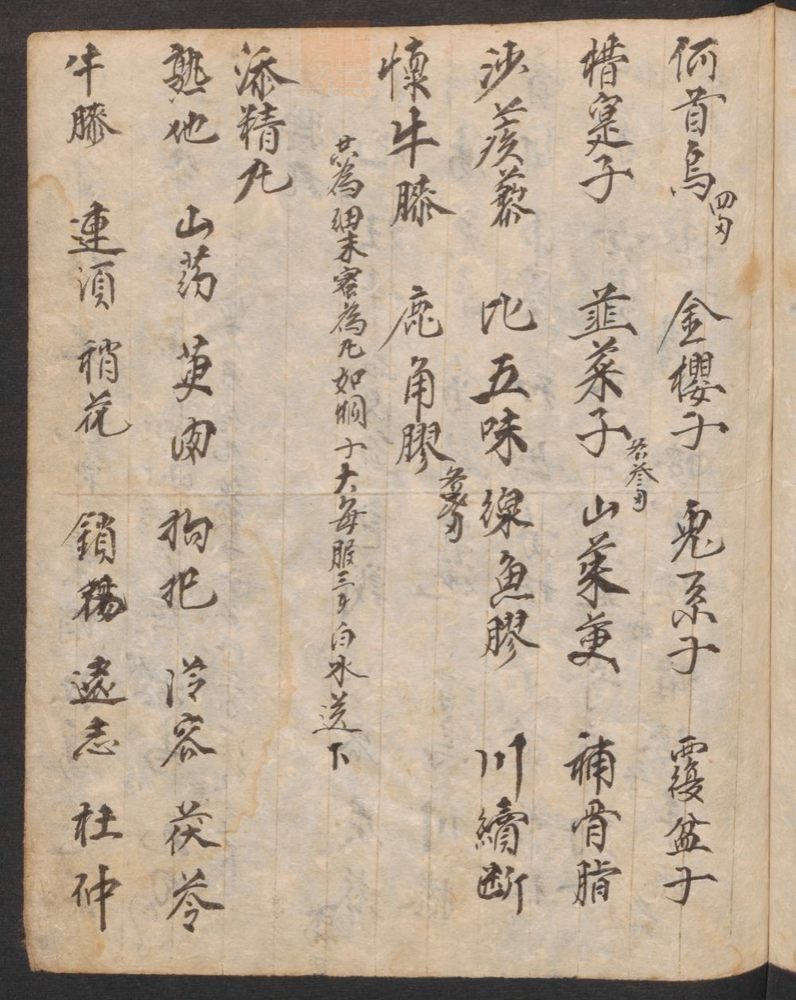 何首烏四刃 金櫻子 兎糸子 覆盆子
楮寔子 韮菜子各叁刃 山茱萸 補骨脂
沙蒺藜 北五味 線魚膠 川續断
懷牛膝 鹿角膠
共為細末蜜為丸如桐子大每服三錢白水送下
添精丸
熟地 山药 萸肉 枸杞 茯苓
牛膝 連須 稍花 鎖楊 遠志 杜仲